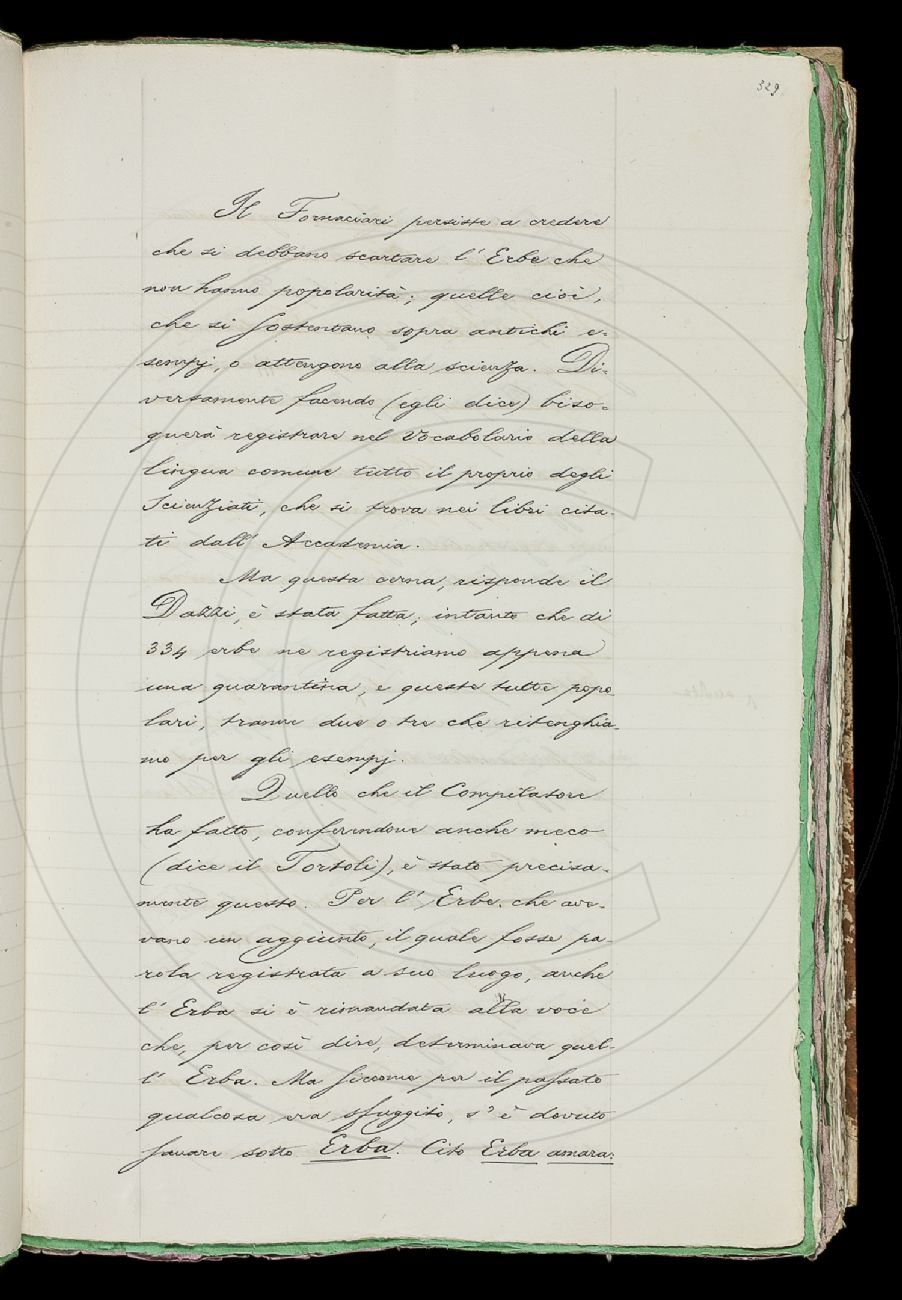 329
Il Fornaciari persiste a credere
che si debbano scartare l'Erbe che
non hanno popolarità; quelle cioè,
che si sostentano sopra antichi e-
sempj, o attengono alla scienza. Di-
versamente facendo (egli dice) biso-
gnerà registrare nel Vocabolario della
lingua comune tutto il proprio degli
Scienziati, che si trova nei libri cita-
ti dall'Accademia.
Ma questa cerna, risponde il
Dazzi, è stata fatta; intanto che di
334 erbe ne registriamo appena
una quarantina, e queste tutte popo-
lari, tranne due o tre che ritenghia-
mo per gli esempj.
Quello che il Compilatore
ha fatto, conferendone anche meco
(dice il Tortoli), è stato precisa-
mente questo. Per l'Erbe che ave-
vano un aggiunto, il quale fosse pa-
rola registrata a suo luogo, anche
l'Erba si è rimandata alla voce
che, per così dire, determinava quel-
l'Erba. Ma siccome per il passato
qualcosa era sfuggito, s'è dovuto
sanare sotto Erba. Cito Erba amara: